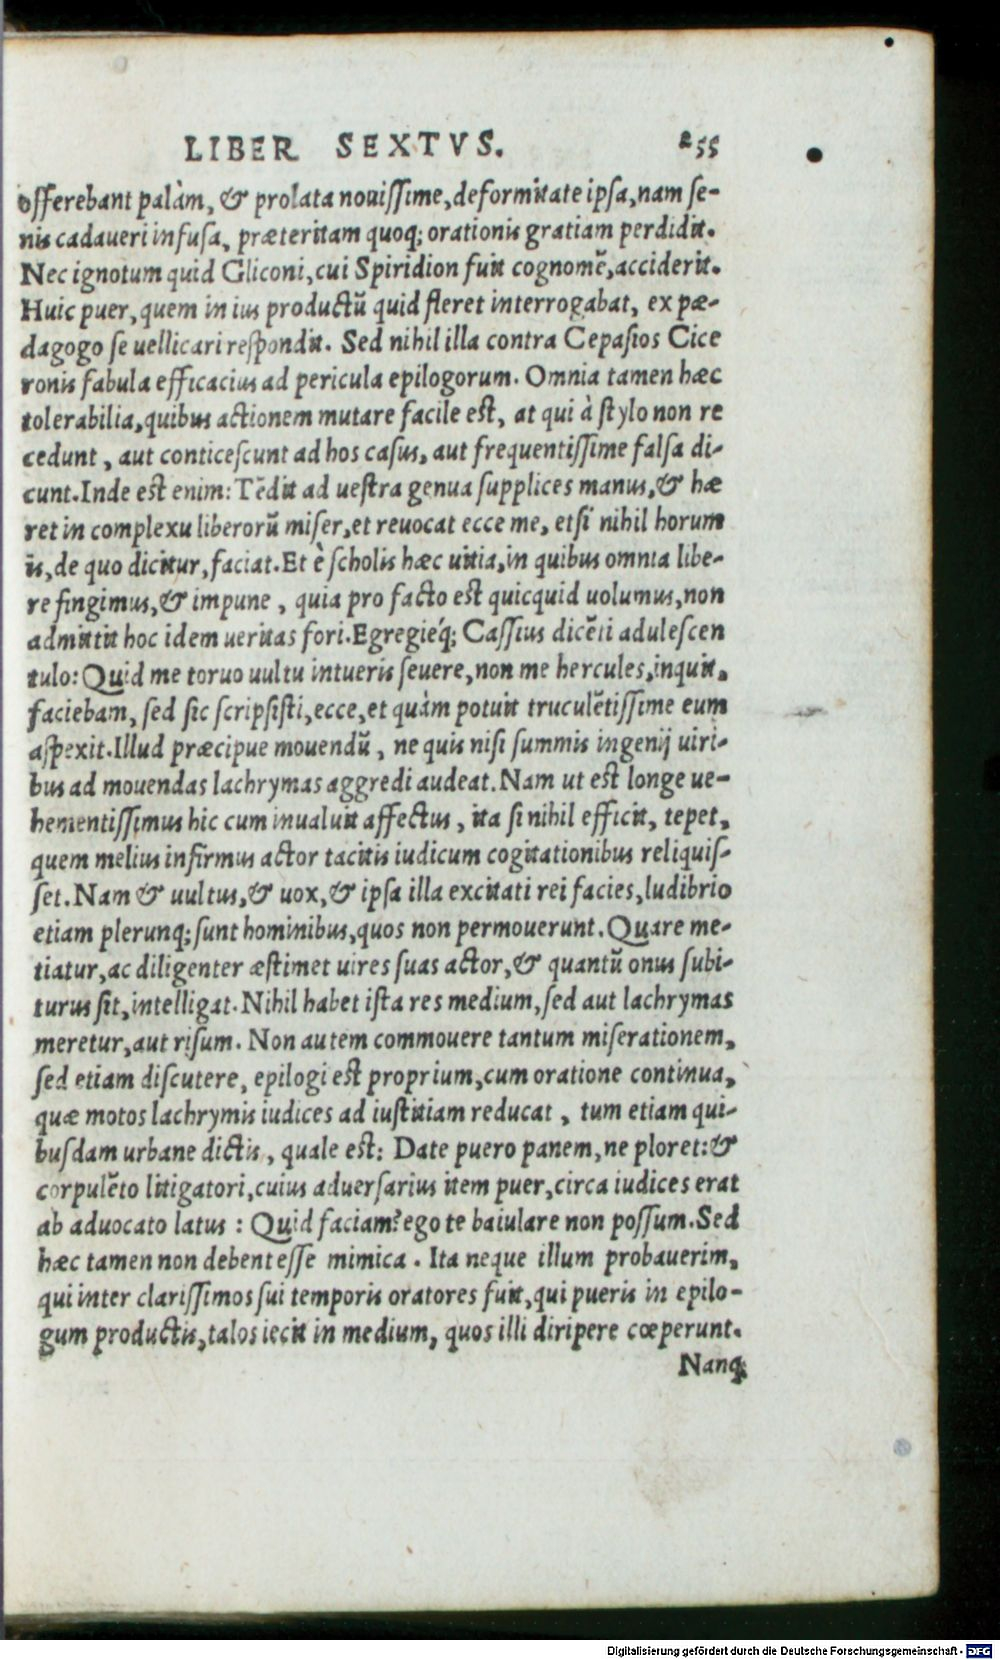 LIBER SEXTVS. 255
offerebant palàm, & prolata nouiſſime, deformitate ipſa, nam ſe-
nis cadaueri infuſa, præteritam quoq; orationis gratiam perdidit.
Nec ignotum quid Gliconi, cui Spiridion fuit cognomẽ, acciderit.
Huic puer, quem in ius productũ quid fleret interrogabat, ex pæ-
dagogo ſe uellicari reſpondit. Sed nihil illa contra Cepaſios Cice
ronis fabula efficacius ad pericula epilogorum. Omnia tamen hæc
tolerabilia, quibus actionem mutare facile eſt, at qui à ſtylo non re
cedunt, aut conticeſcunt ad hos caſus, aut frequentiſſime falſa di-
cunt. Inde eſt enim: Tẽdit ad ueſtra genua ſupplices manus, & hæ
ret in complexu liberorũ miſer, et reuocat ecce me, etſi nihil horum
is, de quo dicitur, faciat. Et è ſcholis hæc uitia, in quibus omnia libe-
re fingimus, & impune, quia pro facto eſt quicquid uolumus, non
admittit hoc idem ueritas fori. Egregieq́; Caſſius dicẽti aduleſcen
tulo: Quid me toruo uultu intueris ſeuere, non me hercules, inquit,
faciebam, ſed ſic ſcripſiſti, ecce, et quàm potuit truculẽtiſſime eum
aſpexit. Illud præcipue mouendũ, ne quis niſi ſummis ingenij uiri-
bus ad mouendas lachrymas aggredi audeat. Nam ut eſt longe ue-
hementiſſimus hic cum inualuit affectus, ita ſi nihil efficit, tepet,
quem melius infirmus actor tacitis iudicum cogitationibus reliquiſ-
ſet. Nam & uultus, & uox, & ipſa illa excitati rei facies, ludibrio
etiam plerunq; ſunt hominibus, quos non permouerunt. Quare me-
tiatur, ac diligenter æſtimet uires ſuas actor, & quantũ onus ſubi-
turus ſit, intelligat. Nihil habet iſta res medium, ſed aut lachrymas
meretur, aut riſum. Non autem commouere tantum miſerationem,
ſed etiam diſcutere, epilogi eſt proprium, cum oratione continua,
quæ motos lachrymis iudices ad iuſtitiam reducat, tum etiam qui-
buſdam urbane dictis, quale eſt: Date puero panem, ne ploret: &
corpulẽto litigatori, cuius aduerſarius item puer, circa iudices erat
ab aduocato latus: Quid faciam? ego te baiulare non poſſum. Sed
hæc tamen non debent eſſe mimica. Ita neque illum probauerim,
qui inter clariſſimos ſui temporis oratores fuit, qui pueris in epilo-
gum productis, talos iecit in medium, quos illi diripere cœperunt.
Nanq;
Digitalisierung gefördert durch die Deutsche Forschungsgemeinschaft - DFG